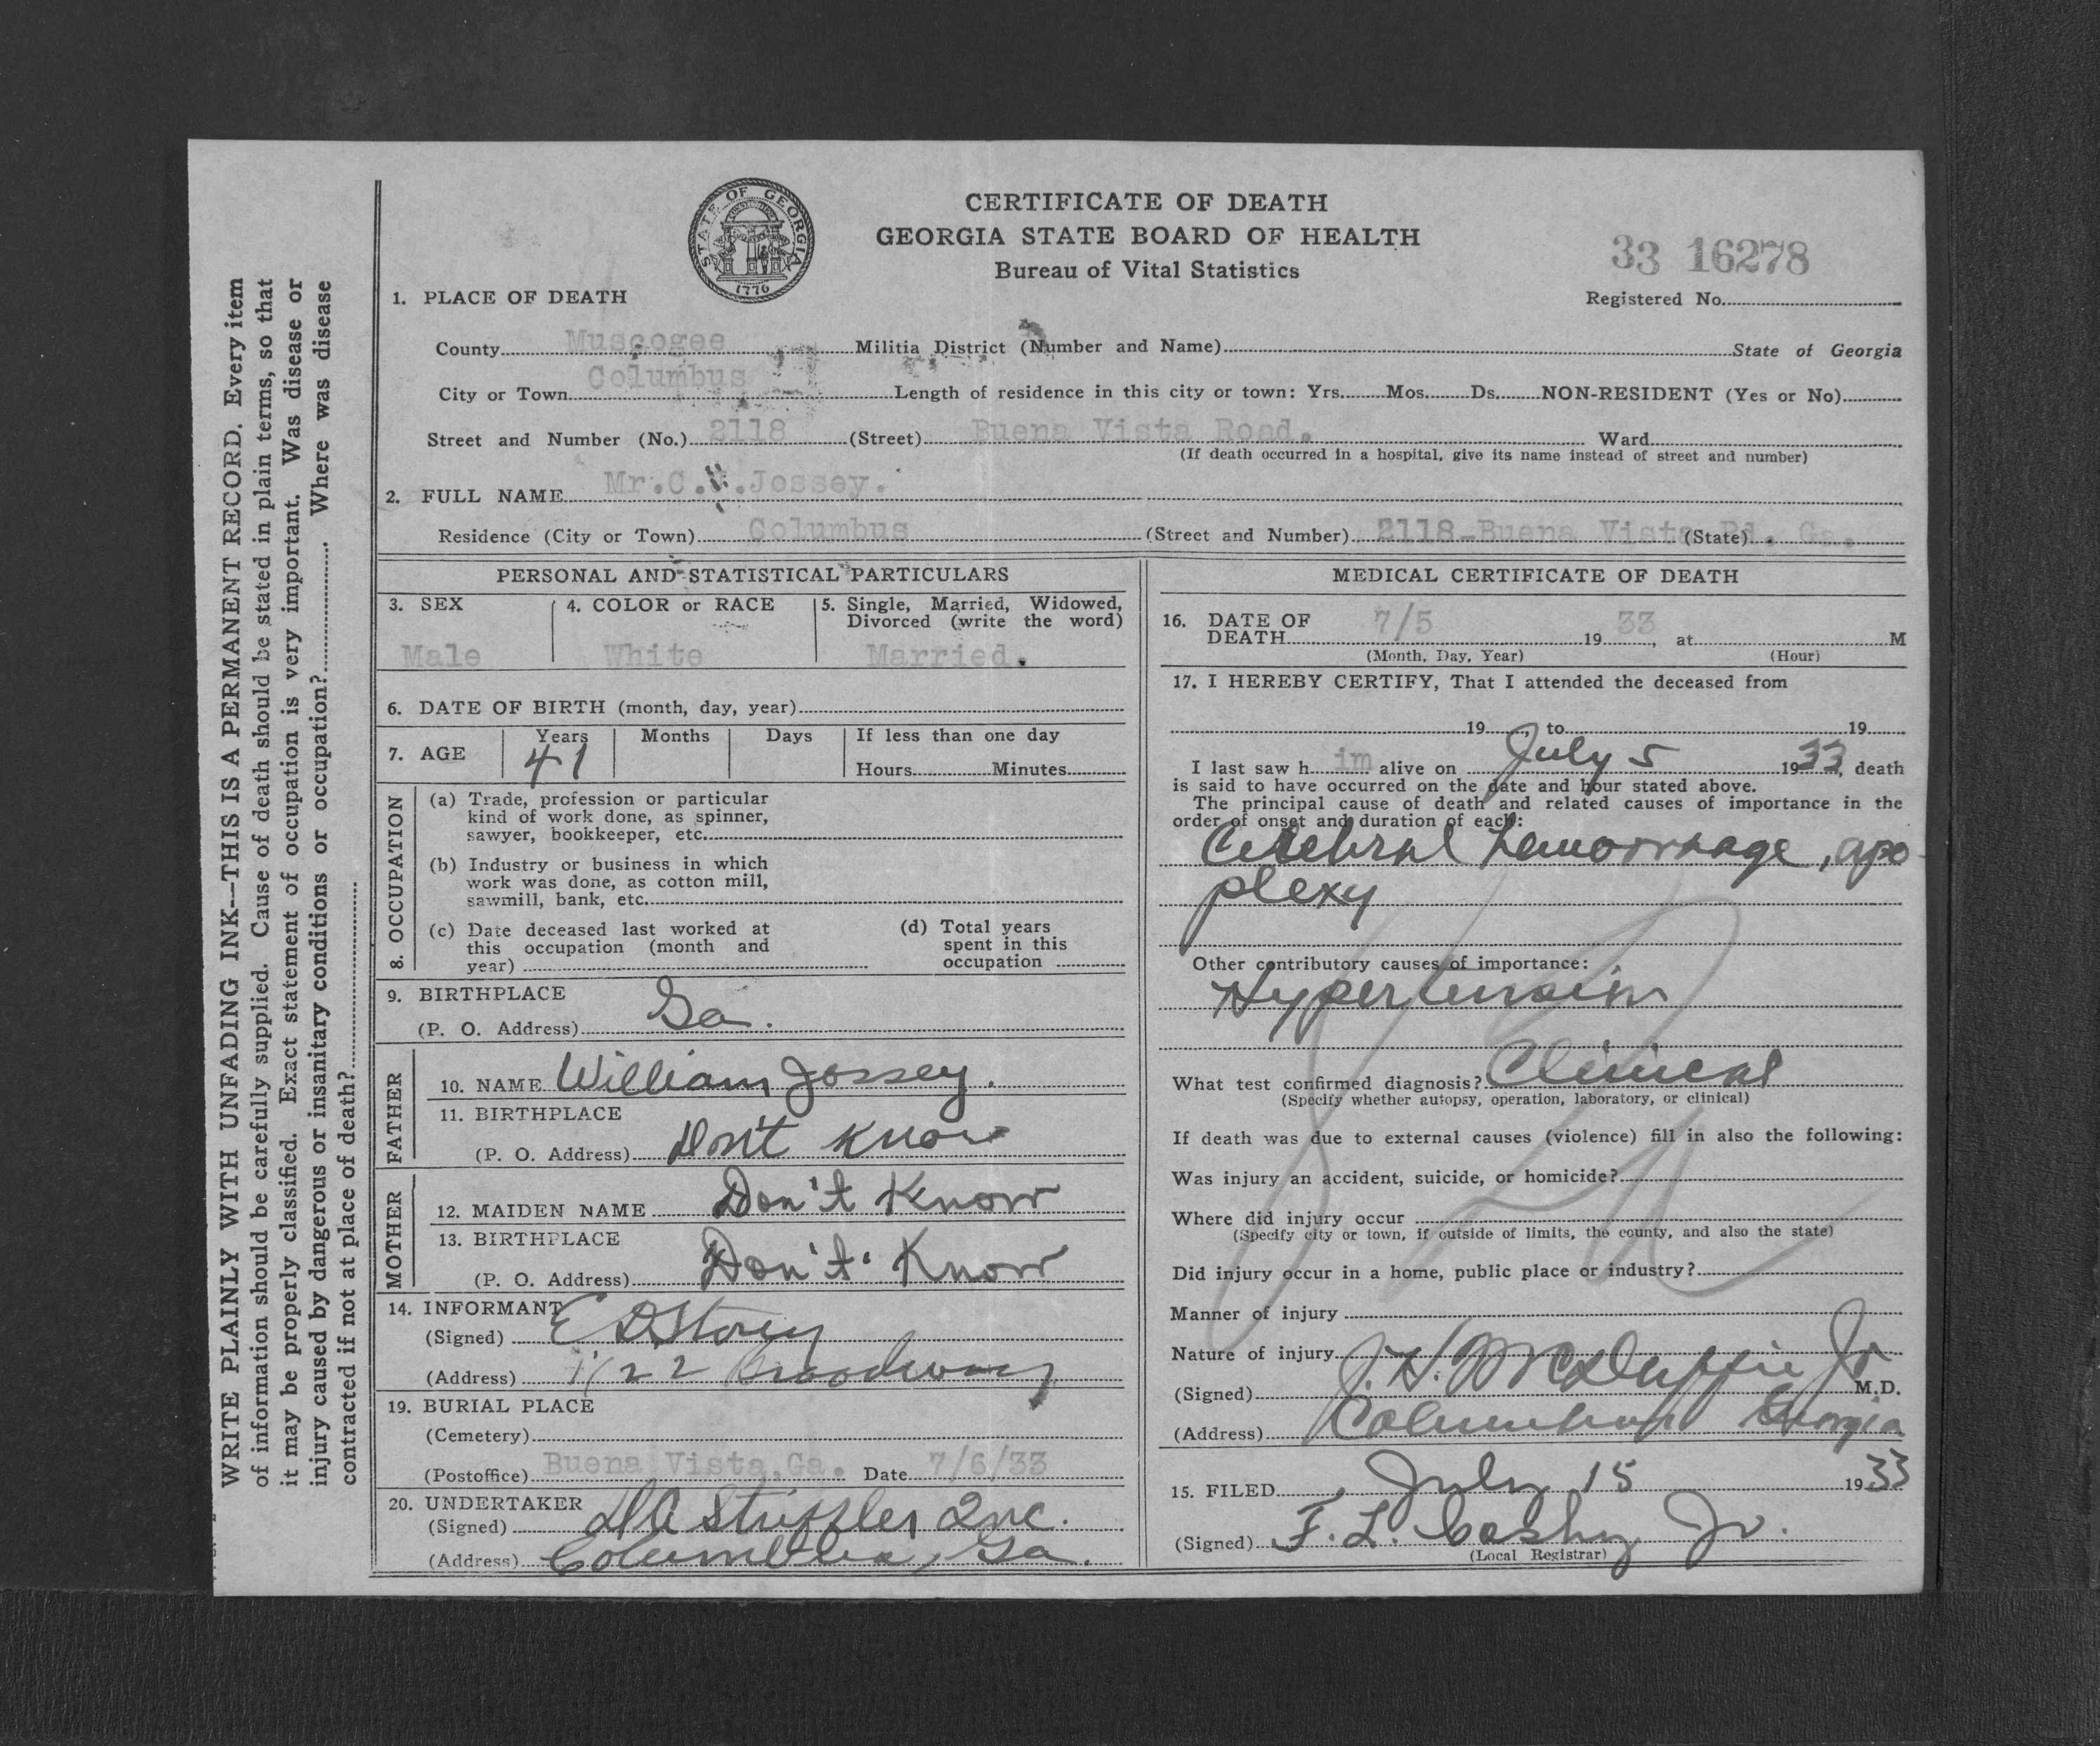 WRITE PLAINLY WITH UNFADING INK—THIS IS A PERMANENT RECORD. Every item
of information should be carefully supplied. Cause of death should be stated in plain terms, so that
it may be properly classified. Exact statement of occupation is very important. Was disease or
injury caused by dangerous or insanitary conditions or occupation? Where was disease
contracted if not at place of death?
STATE OF GEORGIA
1776
CERTIFICATE OF DEATH
GEORGIA STATE BOARD OF HEALTH
Bureau of Vital Statistics
33 16278
Registered No.
1. PLACE OF DEATH
County Muscogee Militia District (Number and Name) State of Georgia
City or Town Columbus Length of residence in this city or town: Yrs. Mos. Ds. NON-RESIDENT (Yes or No)
Street and Number (No.) 2118 (Street) Buena Vista Road. Ward
(If death occurred in a hospital, give its name instead of street and number)
2. FULL NAME Mr.C. .Jossey.
Residence (City or Town) Columbus (Street and Number) 2118-Buena Vista Rd. (State) Ga.
PERSONAL AND STATISTICAL PARTICULARS
3. SEX Male
4. COLOR or RACE White
5. Single, Married, Widowed,
Divorced (write the word)
Married.
6. DATE OF BIRTH (month, day, year)
7. AGE Years Months Days If less than one day
41 Hours Minutes
8. OCCUPATION
(a) Trade, profession or particular
kind of work done, as spinner,
sawyer, bookkeeper, etc.
(b) Industry or business in which
work was done, as cotton mill,
sawmill, bank, etc.
(c) Date deceased last worked at
this occupation (month and
year)
(d) Total years
spent in this
occupation
9. BIRTHPLACE
(P. O. Address) Ga.
FATHER
10. NAME William Jossey.
11. BIRTHPLACE
(P. O. Address) Don't know
MOTHER
12. MAIDEN NAME Don't Know
13. BIRTHPLACE
(P. O. Address) Don't Know
14. INFORMANT
(Signed) E D Storey
(Address) 1122 Broadway
19. BURIAL PLACE
(Cemetery)
(Postoffice) Buena Vista,Ga. Date 7/6/33
20. UNDERTAKER
(Signed) Striffler Inc.
(Address) Columbus, Ga.
MEDICAL CERTIFICATE OF DEATH
16. DATE OF
DEATH 7/5 19 33, at M
(Month, Day, Year) (Hour)
17. I HEREBY CERTIFY, That I attended the deceased from
19 , to 19
I last saw h im alive on July 5 1933, death
is said to have occurred on the date and hour stated above.
The principal cause of death and related causes of importance in the
order of onset and duration of each:
Cerebral hemorrhage, apo-
plexy
Other contributory causes of importance:
Hypertension
What test confirmed diagnosis? Clinical
(Specify whether autopsy, operation, laboratory, or clinical)
If death was due to external causes (violence) fill in also the following:
Was injury an accident, suicide, or homicide?
Where did injury occur
(Specify city or town, if outside of limits, the county, and also the state)
Did injury occur in a home, public place or industry?
Manner of injury
Nature of injury
(Signed) J. H. McDuffie Jr M.D.
(Address) Columbus Georgia
15. FILED July 15 1933
(Signed) F. L. Jr.
(Local Registrar)